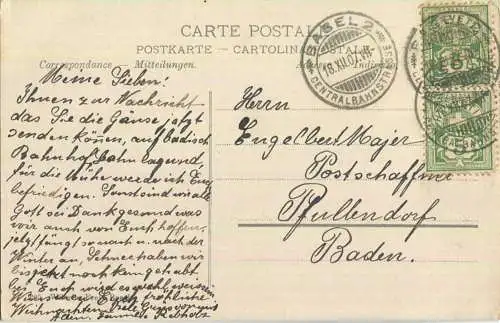 CARTE POSTALE
POSTKARTE – CARTOLINA POSTALE
Correspondance • Mittheilungen.
BASEL 2
18.XII.07
CENTRALBAHNSTRASSE
Meine Lieben!
Ihnen zur Nachricht
das Sie die Gänse jetzt
senden können, auf badisch
Bahnhof Bahnlagernd,
für die Mühe werde ich Euch
befriedigen. Sonst sind wir alle
Gott sei Dank gesund was
wir auch von Euch hoffen,
jetzt fängt so nach u. nach der
Winter an, Schnee haben wir
bis jetzt noch kein gehabt
bei Euch wird es wohl
wünschen Euch fröhliche
Weihnachten. Viele Grüsse von uns
Allen. Familie Rebholz
Herrn
Engelbert Majer
Postschaffner
Pfullendorf
Baden.